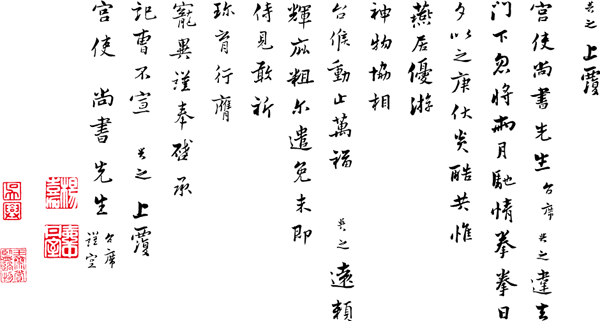 之上覆
宮使尚書先生台席之違去
門下忽將兩月馳情拳拳日
夕以之庚伏炎酷共惟
燕居優游
神物協相
台候動止萬福之遠賴
輝庇粗尔遣免未即
侍見敢祈
珍育行膺
寵異謹奉啓承
記曹不宣之上覆
宮使尚書先生台席
謹空